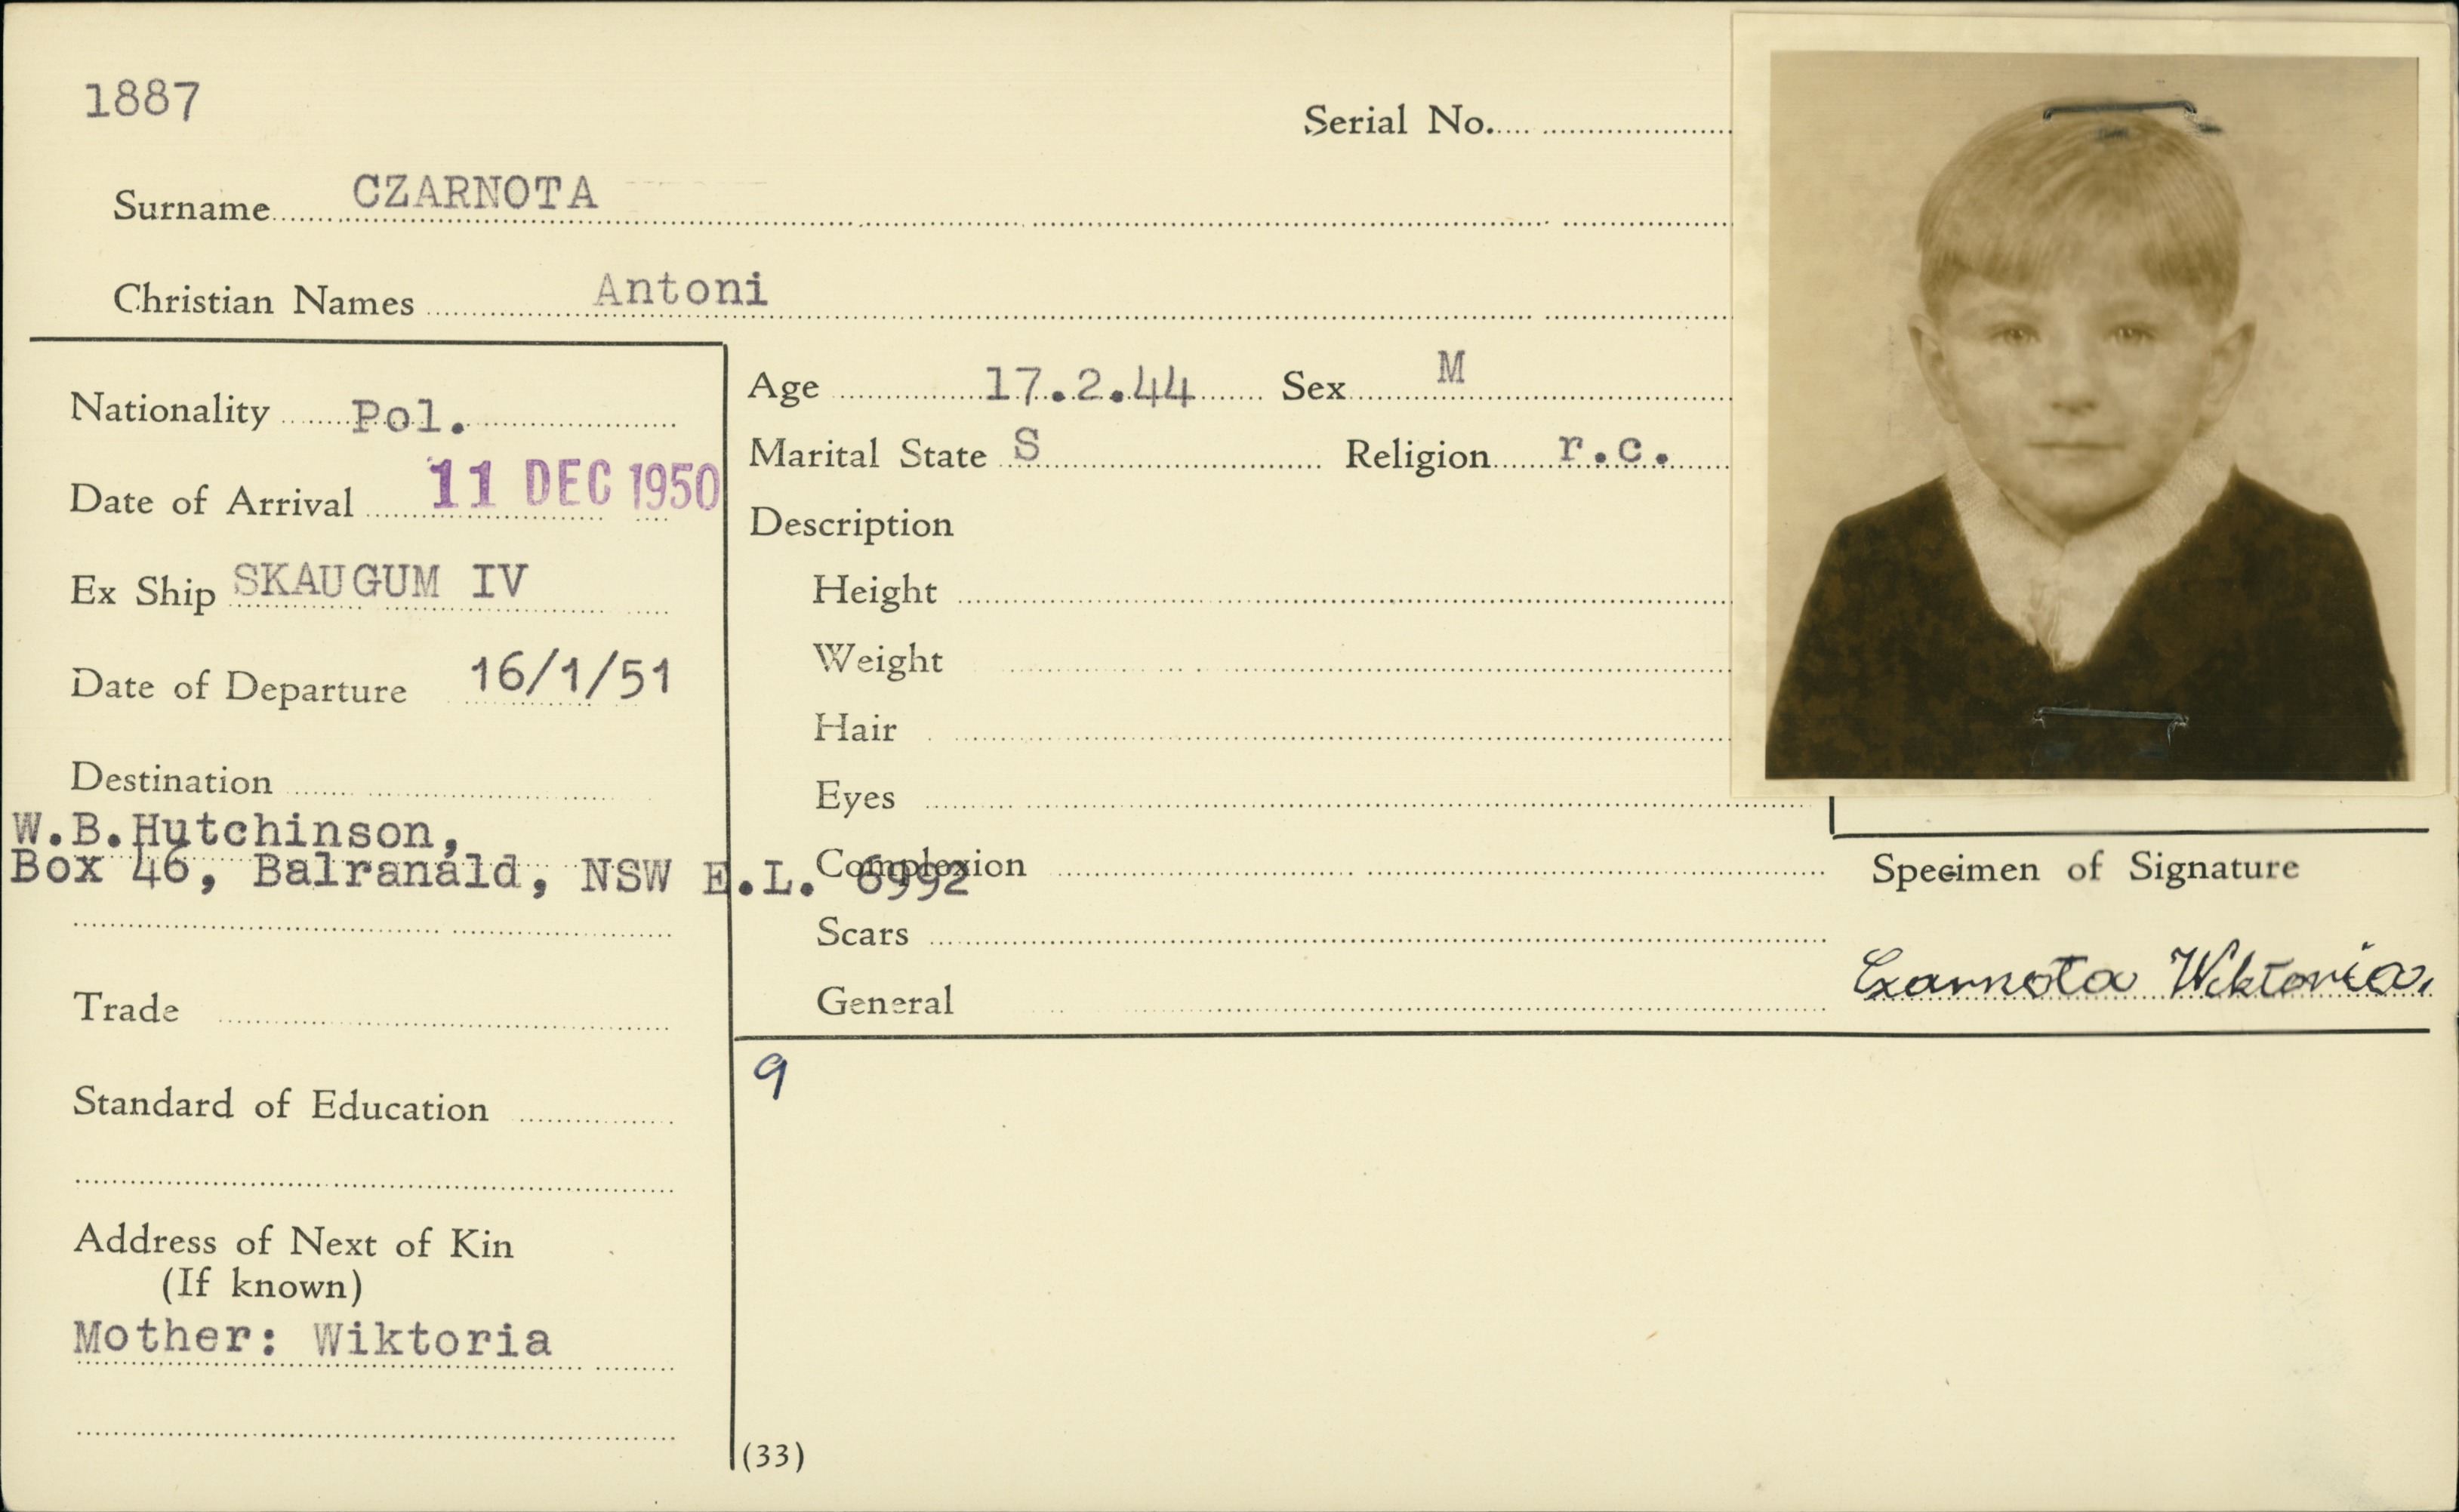 1887
Serial No.
Surname CZARNOTA
Christian Names Antoni
Nationality Pol.
Date of Arrival 11 DEC 1950
Ex Ship SKAUGUM IV
Date of Departure 16/1/51
Destination
W.B.Hutchinson,
Box 46, Balranald, NSW E.L. 6992
Trade
Standard of Education
Address of Next of Kin
(If known)
Mother: Wiktoria
Age 17.2.44 Sex M
Marital State S Religion r.c.
Description
Height
Weight
Hair
Eyes
Complexion
Scars
General
Specimen of Signature
Czarnota Wiktoria
9
(33)